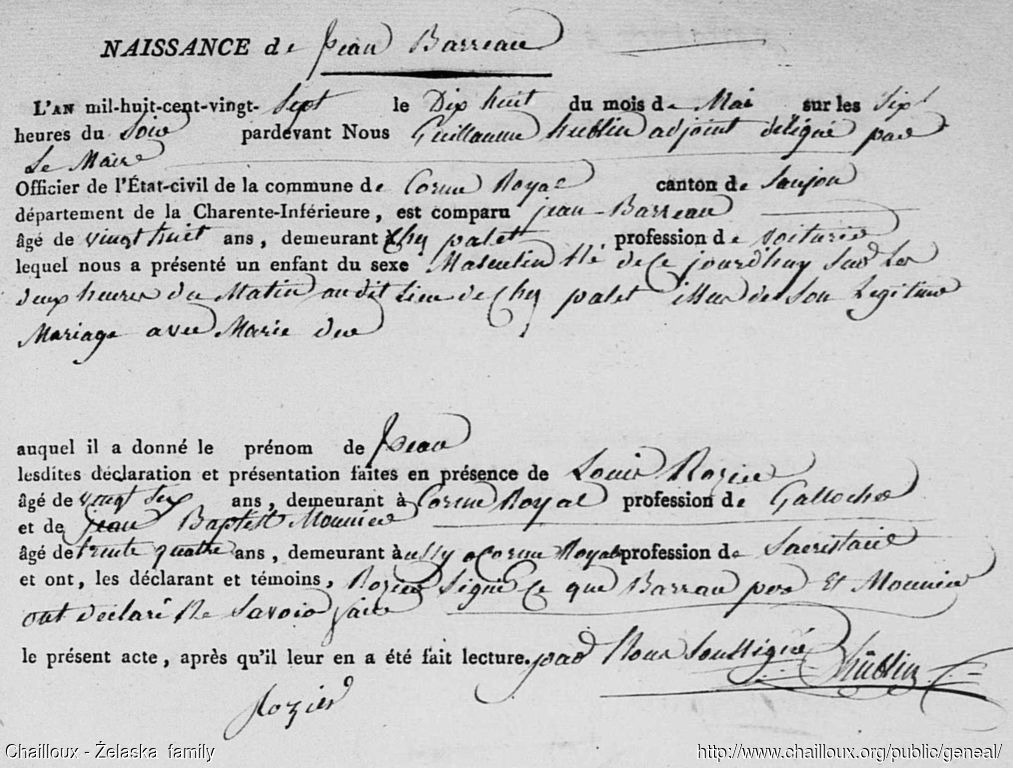 NAISSANCE de Jean Barreau
L'AN mil-huit-cent-vingt-Sept le Dix huit du mois de Mai sur les Six
heures du Soir pardevant Nous Guillaume hublin adjoint délégué par
Le Maire
Officier de l'État-civil de la commune de Corme Royal canton de Saujon
département de la Charente-Inférieure, est comparu jean Barreau
âgé de vingt huit ans, demeurant Chez palet profession de voiturier
lequel nous a présenté un enfant du sexe Masculin Né de Ce jourdhuy Sur Les
deux heures du Matin au dit Lieu de Chez palet issue de Son Legitime
Mariage avec Marie
auquel il a donné le prénom de Jean
lesdites déclaration et présentation faites en présence de Louis Rozier
âgé de vingt Six ans, demeurant à Corme Royal profession de Galloché
et de jean Baptist Mounier
âgé de trente quatre ans, demeurant à ussy a Corme Royal profession de Sacristain
et ont, les déclarant et témoins, Rozier Signé Ce que Barrau per Et Mounier
ont déclaré Ne Savoir faire
le présent acte, après qu'il leur en a été fait lecture. par Nous Soussigné hublin
Rozier
Chailloux - Żelaska family
http://www.chailloux.org/public/geneal/